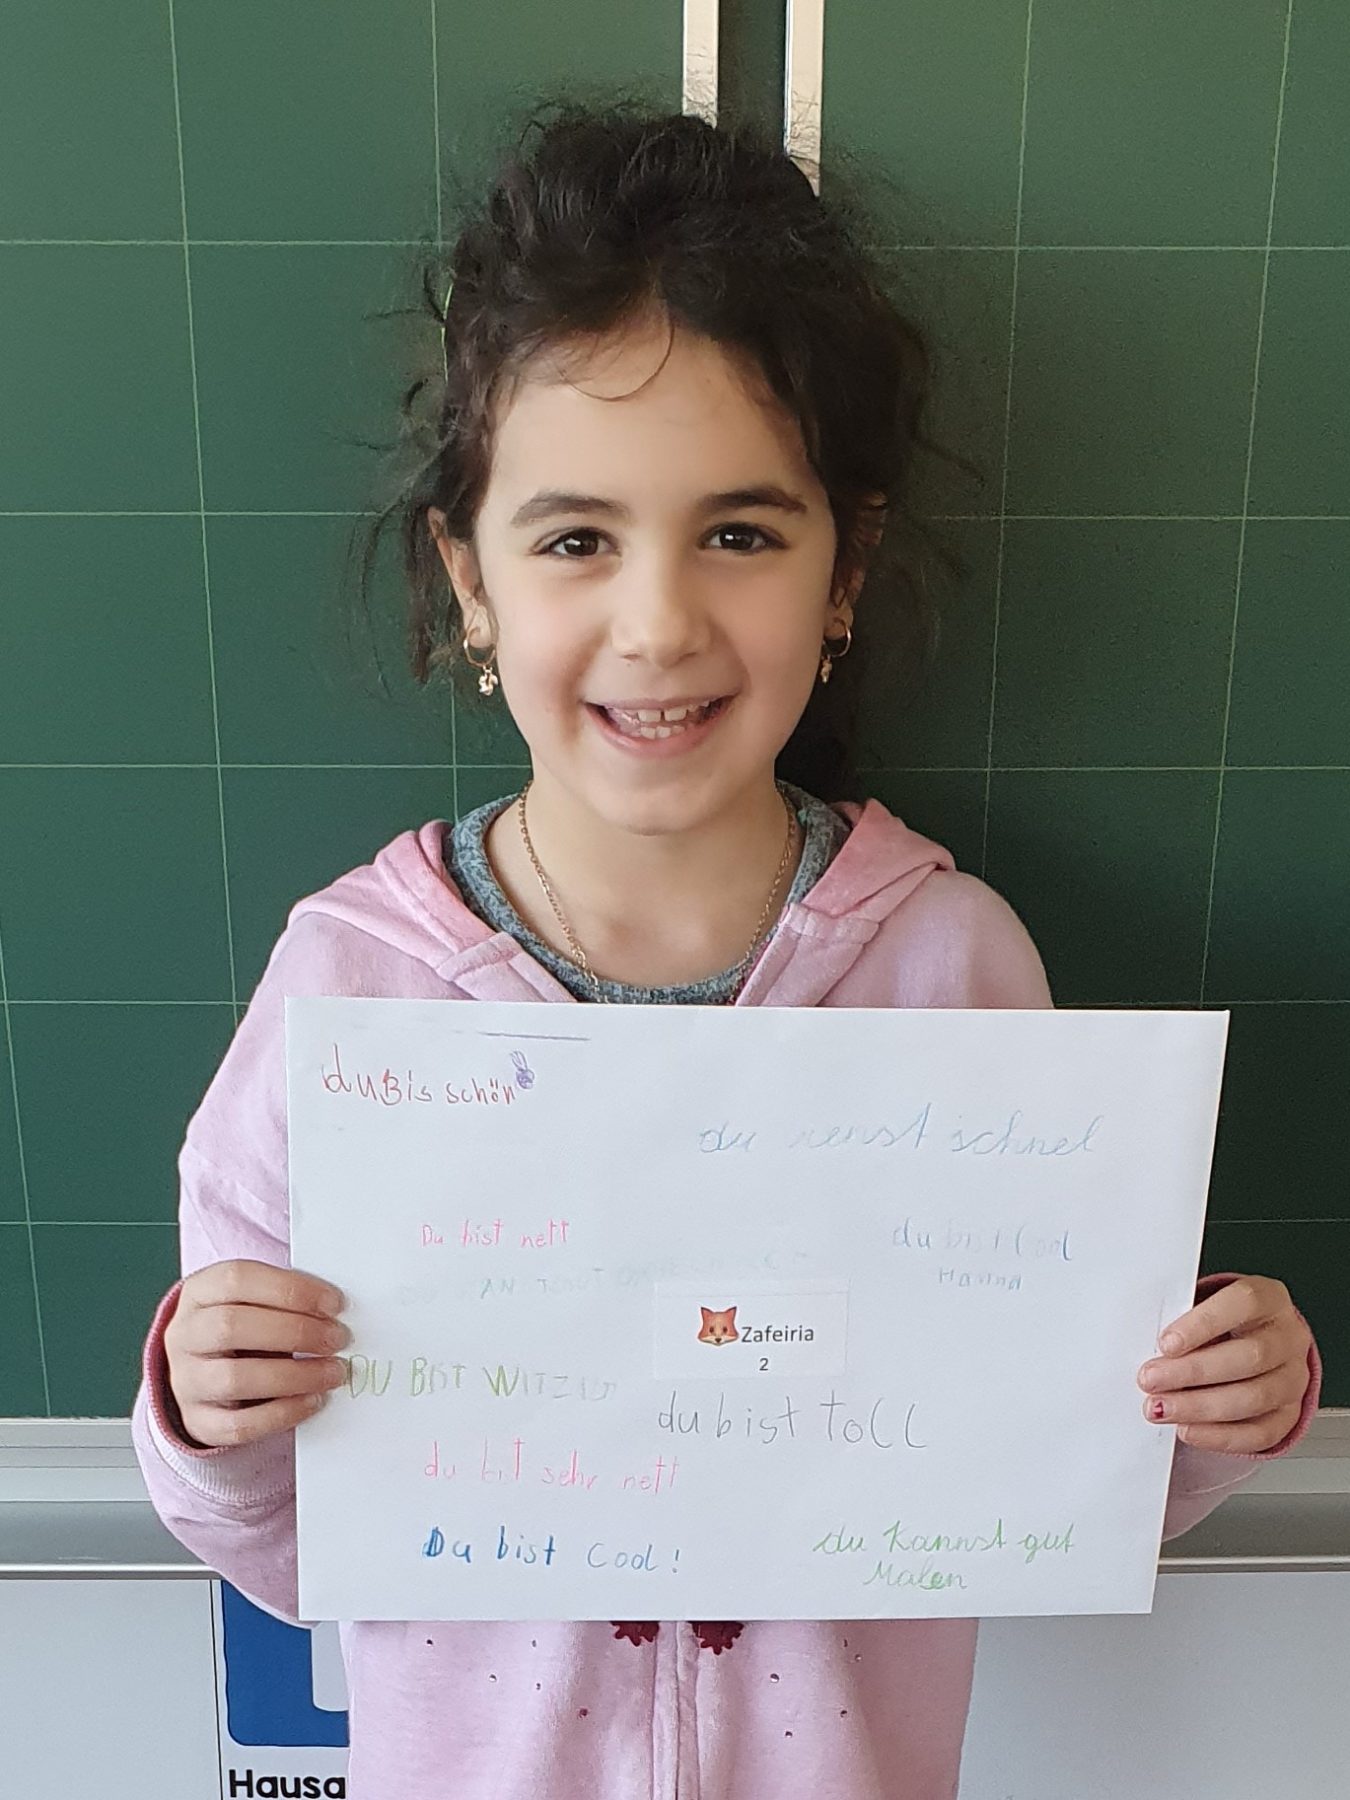 du Bis schön
du renst schnel
Du bist nett
du bist Cool
Hanna
Zafeiria
2
DU BIST WITZIG
du bist toll
du bit sehr nett
Du bist Cool!
du Kannst gut
Malen
Hausa